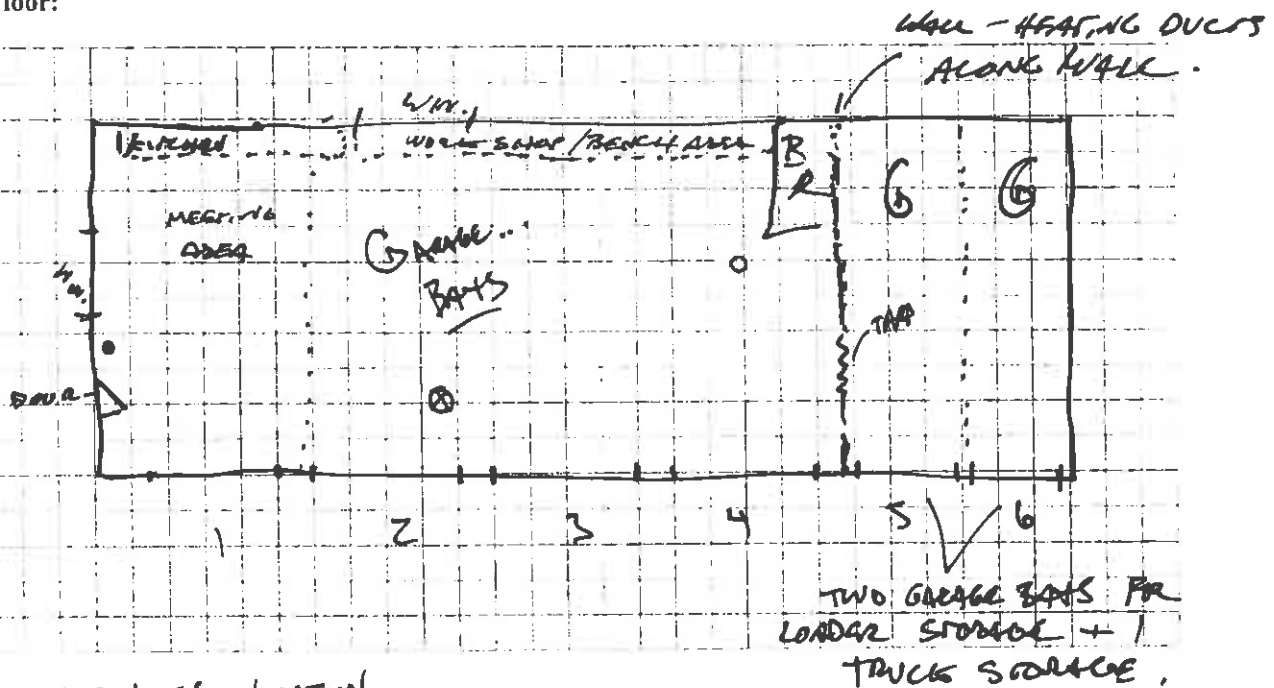 loor:
WALL - HEATING DUCTS
ALONG WALL.
WIN.
KITCHEN
WORK SHOP/BENCH AREA
B
R
G
G
MEETING
AREA
GARAGE...
BAYS
WIN.
TARP
DOOR
1 2 3 4 5 6
TWO GARAGE BAYS FOR
LOADER STORAGE + 1
TRUCK STORAGE.